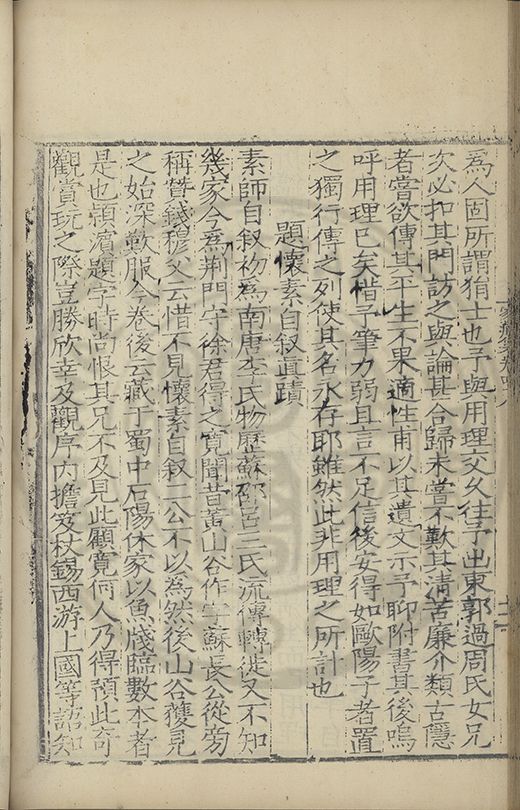 為人固所謂狷士也予與用理交久往予出東郭過周氏女兄
次必扣其門訪之與論甚合歸未嘗不歎其清苦廉介類古隱
者嘗欲傳其平生不果適性甫以其遺文示予聊附書其後嗚
呼用理已矣惜予筆力弱且言不足信後安得如歐陽子者置
之獨行傳之列使其名永存耶雖然此非用理之所計也
題懷素自叙真蹟
素師自叙初為南唐李氏物歷蘇邵呂三氏流傳轉徙又不知
幾家今為荆門守徐君得之寬聞昔黃山谷作字蘇長公從旁
稱贊錢穆父云惜不見懷素自叙二公不以為然後山谷獲見
之始深歎服今卷後云藏于蜀中石陽休家以魚牋臨數本者
是也潁濱題字時尚恨其兄不及見此顧寬何人乃得預此奇
觀賞玩之際豈勝欣幸及觀序内擔笈杖錫西游上國等語知